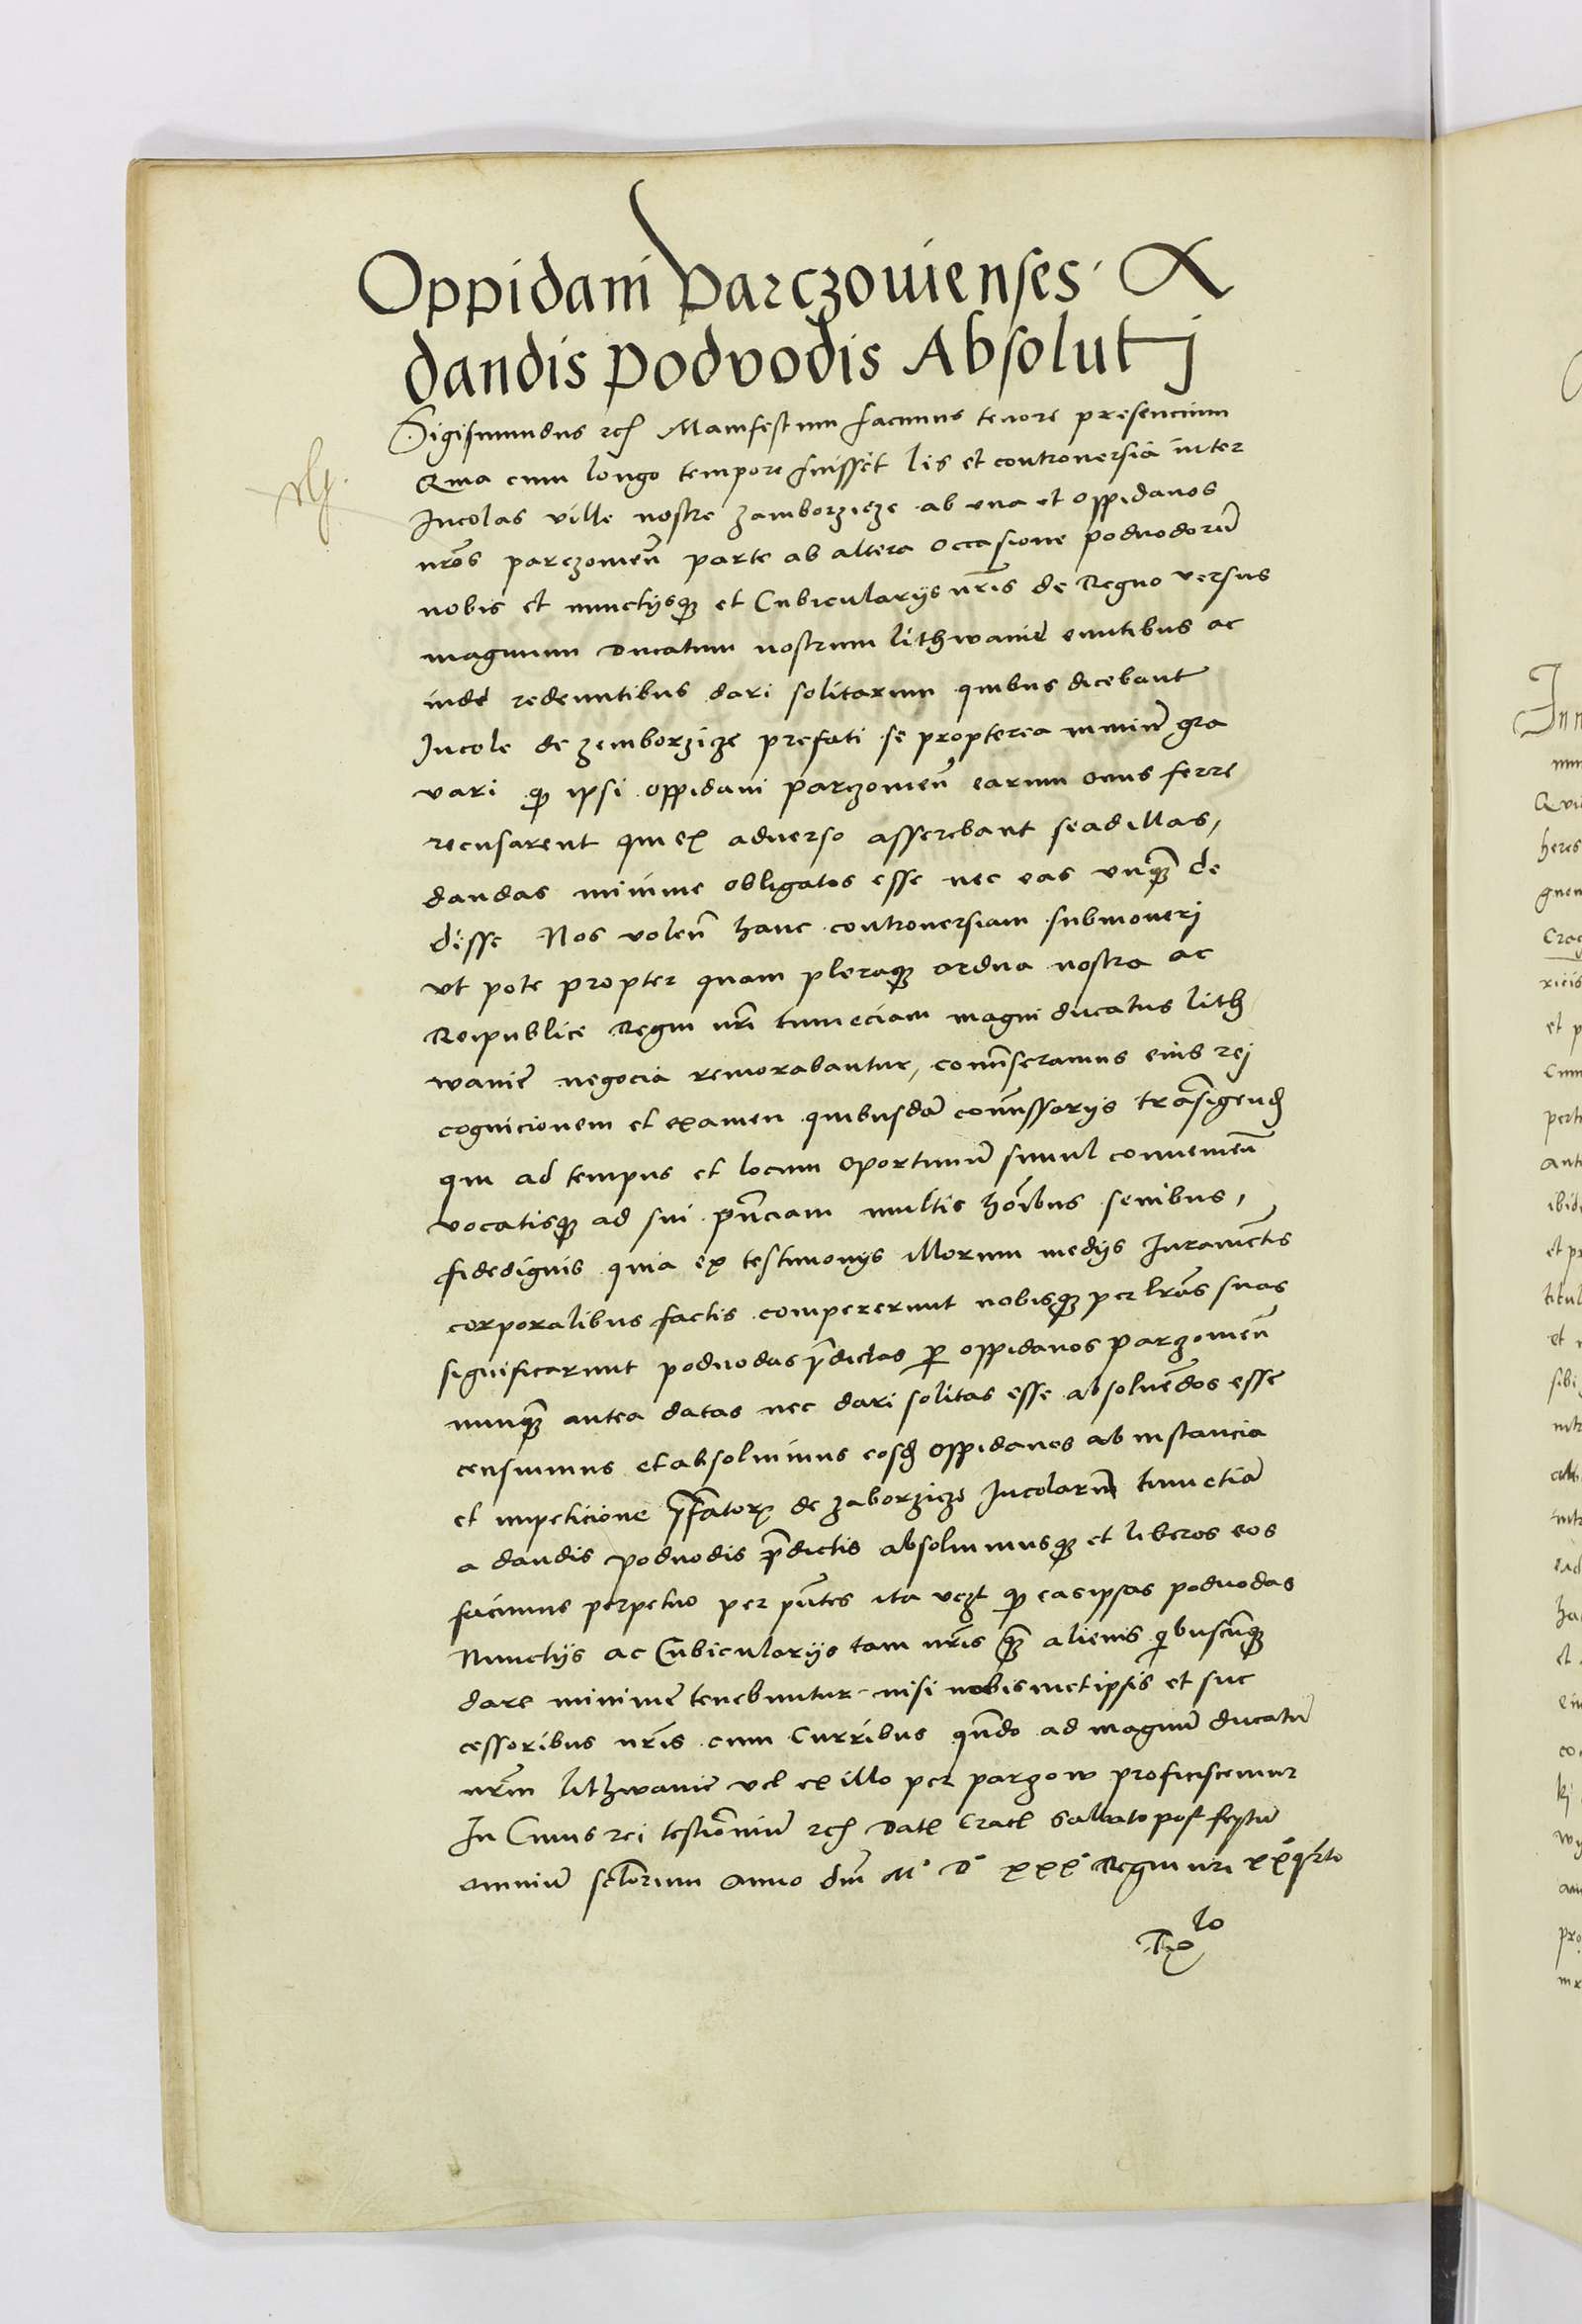 Oppidani Parczovienses A
dandis Podvodis Absolutj
Sigismundus rex Manifestum facimus tenore presencium
Quia cum longo tempore fuisset lis et controversia inter
Incolas ville nostre zamborzicze ab una et oppidanos
nros parczovien parte ab altera occasione podvodoru
nobis et nunctysq et Cubicularys nris de Regno versus
magnum ducatum nostrum lithwanie euntibus ac
inde redeuntibus dari solitarum quibus dicebant
Incole de zemborzicze prefati se propterea nimiu gra
vari q ipsi oppidani parczovien earum onus ferre
recusarent qui ex adverso asserebant se ad illas,
dandas minime obligatos esse nec eas unq de
disse Nos volen hanc controversiam submoverj
ut pote propter quam pleraq ardua nostra ac
Reipublice Regni nri tum eciam magni ducatus lith
wanie negocia remorabantur, comiseramus eius rej
cognicionem et examen quibusda comissarys trasigend
qui ad tempus et locum oportunu simul convenien
vocatisq ad sui pnciam multis hoibus senibus,
fidedignis quia ex testimonys illorum medys Iuramentis
corporalibus factis compererunt nobisq per lras suas
significarunt podvodas pdictas p oppidanos parzovien
nunq antea datas nec dari solitas esse absolvedos esse
censuimus et absolvimus eosd oppidanos ab instancia
et impeticione pfator de zaborzicze Incolarum tum etia
a dandis podvodis pdictis absolvimusq et liberos eos
facimus perpetuo per pntes ita vezt q eas ipsas podvodas
Nunctys ac Cubicularys tam nris q alienis qibuscuq
dare minime tenebuntur nisi nobismet ipsis et suc
cessoribus nris cum Curribus qndo ad magnu ducatu
nrm lithwanie vel ex illo per parzow proficiscemur
In Cuius rei testimoniu rex Dat Crac Sabbato post festu
omniu sctorum Anno dni M° D° xxx° Regni nri xxqrto